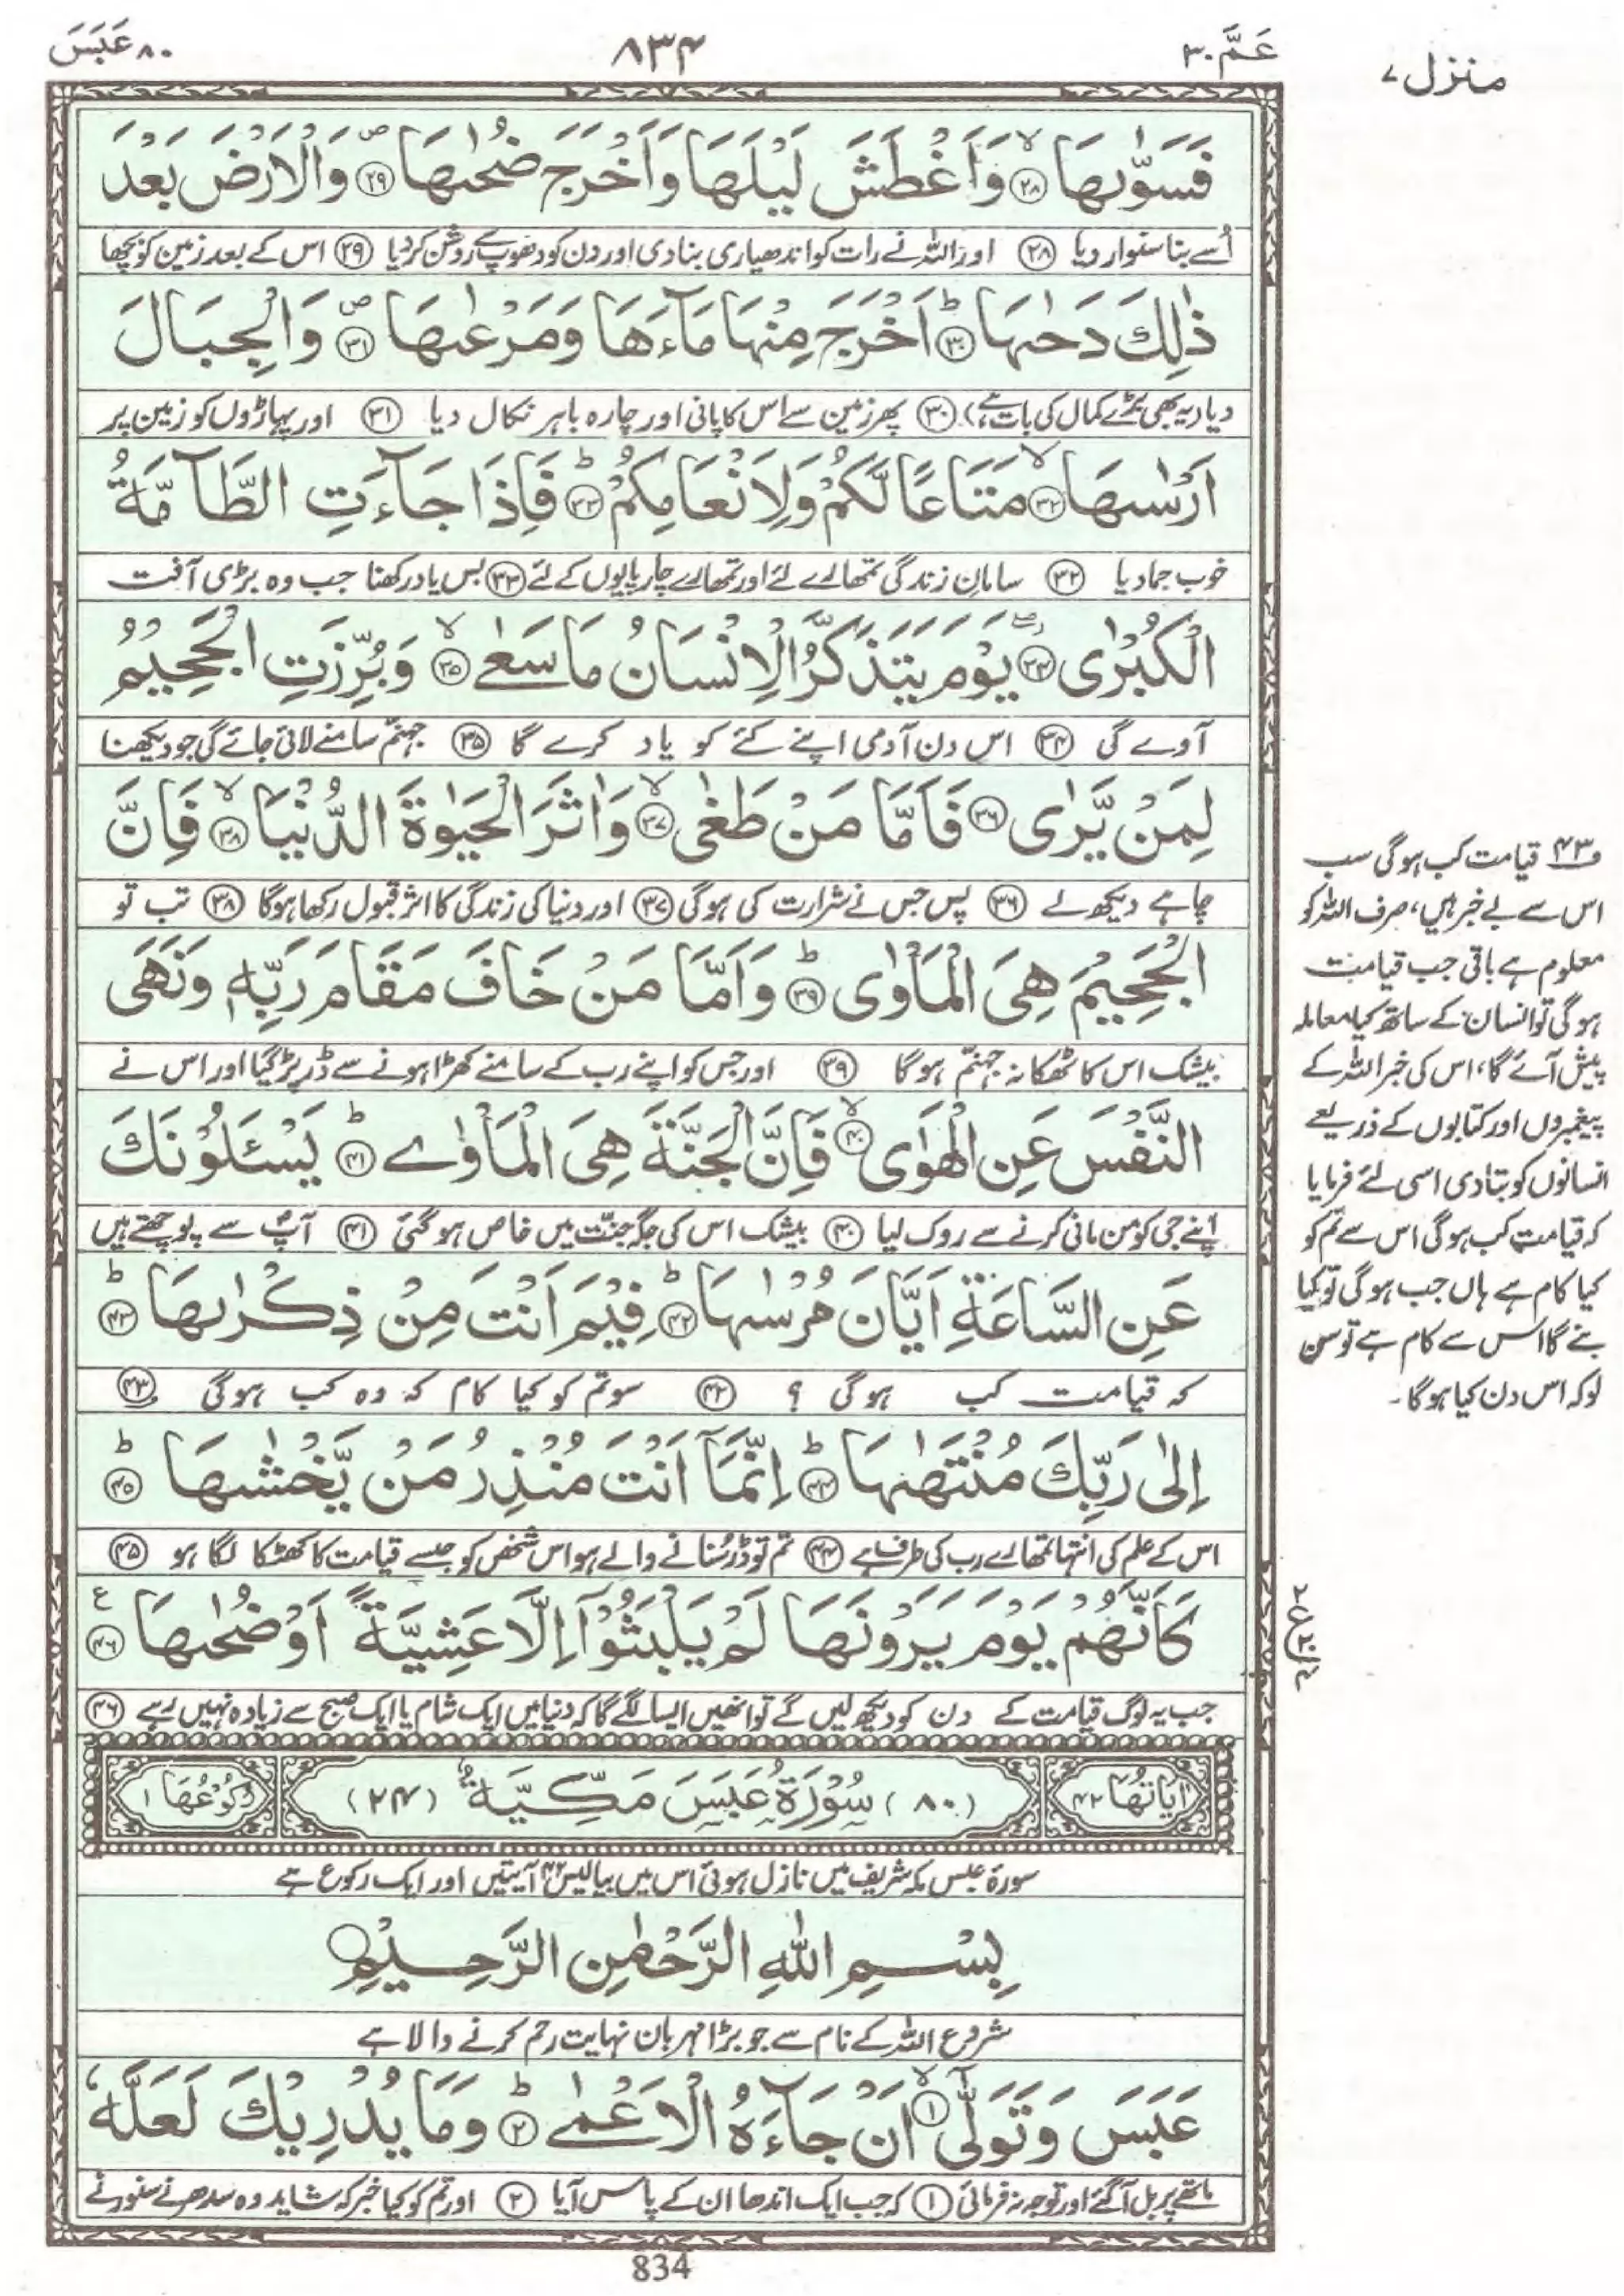 عَمَّ ٣٠
٨٣٤
٨٠ عَبَسَ
منزل ٧
فَسَوّٰىهَا ۙ﴿۲۸﴾ وَاَغْطَشَ لَيْلَهَا وَاَخْرَجَ ضُحٰىهَا ۪﴿۲۹﴾ وَالْاَرْضَ بَعْدَ
اُسے بنا سنوار دیا ﴿۲۸﴾ اور اللہ نے رات کو اندھیاری بنا دی اور دن کو دھوپ سے روشن کر دیا ﴿۲۹﴾ اس کے بعد زمین کو بچھا
ذٰلِكَ دَحٰىهَا ؕ﴿۳۰﴾ اَخْرَجَ مِنْهَا مَآءَهَا وَمَرْعٰىهَا ۪﴿۳۱﴾ وَالْجِبَالَ
دیا (یہ بھی بڑے کمال کی بات ہے) ﴿۳۰﴾ پھر زمین سے اس کا پانی اور چارہ باہر نکال دیا ﴿۳۱﴾ اور پہاڑوں کو زمین پر
اَرْسٰىهَا ۙ﴿۳۲﴾ مَتَاعًا لَّكُمْ وَلِاَنْعَامِكُمْ ؕ﴿۳۳﴾ فَاِذَا جَآءَتِ الطَّآمَّةُ
خوب جما دیا ﴿۳۲﴾ سامانِ زندگی تمھارے لئے اور تمھارے چارپایوں کے لئے ﴿۳۳﴾ بس یاد رکھنا جب وہ بڑی آفت
الْكُبْرٰى ۖ﴿۳۴﴾ يَوْمَ يَتَذَكَّرُ الْاِنْسَانُ مَا سَعٰى ۙ﴿۳۵﴾ وَبُرِّزَتِ الْجَحِيْمُ
آوے گی ﴿۳۴﴾ اس دن آدمی اپنے کئے کو یاد کرے گا ﴿۳۵﴾ جہنّم سامنے لائی جائے گی جو دیکھنا
لِمَنْ يَّرٰى ﴿۳۶﴾ فَاَمَّا مَنْ طَغٰى ۙ﴿۳۷﴾ وَاٰثَرَ الْحَيٰوةَ الدُّنْيَا ۙ﴿۳۸﴾ فَاِنَّ
چاہے دیکھ لے ﴿۳۶﴾ پس جس نے شرارت کی ہوگی ﴿۳۷﴾ اور دنیا کی زندگی کا اثر قبول رکھا ہوگا ﴿۳۸﴾ تب تو
الْجَحِيْمَ هِيَ الْمَاْوٰى ؕ﴿۳۹﴾ وَاَمَّا مَنْ خَافَ مَقَامَ رَبِّهٖ وَنَهَى
بیشک اس کا ٹھکانہ جہنّم ہوگا ﴿۳۹﴾ اور جس کو اپنے رب کے سامنے کھڑا ہونے سے ڈر پڑ گیا اور اس نے
النَّفْسَ عَنِ الْهَوٰى ۙ﴿۴۰﴾ فَاِنَّ الْجَنَّةَ هِيَ الْمَاْوٰے ؕ﴿۴۱﴾ يَسْئَلُوْنَكَ
اپنے جی کو من مانی کرنے سے روک لیا ﴿۴۰﴾ بیشک اس کی جگہ جنّت میں خاص ہوگئی ﴿۴۱﴾ آپؐ سے پوچھتے ہیں
عَنِ السَّاعَةِ اَيَّانَ مُرْسٰىهَا ؕ﴿۴۲﴾ فِيْمَ اَنْتَ مِنْ ذِكْرٰىهَا ؕ﴿۴۳﴾
کہ قیامت کب ہوگی ؟ ﴿۴۲﴾ سو تم کو کیا کام کہ وہ کب ہوگی ﴿۴۳﴾
اِلٰى رَبِّكَ مُنْتَهٰىهَا ؕ﴿۴۴﴾ اِنَّمَآ اَنْتَ مُنْذِرُ مَنْ يَّخْشٰىهَا ؕ﴿۴۵﴾
اس کے علم کی انتہا تمھارے رب کی طرف ہے ﴿۴۴﴾ تم تو ڈر سُنانے والے ہو اس شخص کو جسے قیامت کا کھٹکا لگا ہو ﴿۴۵﴾
كَاَنَّهُمْ يَوْمَ يَرَوْنَهَا لَمْ يَلْبَثُوْٓا اِلَّا عَشِيَّةً اَوْ ضُحٰىهَا ﴿۴۶﴾ ع
جب یہ لوگ قیامت کے دن کو دیکھ لیں گے تو انھیں ایسا لگے گا کہ دنیا میں ایک شام یا ایک صبح سے زیادہ نہیں رہے ﴿۴۶﴾
اٰيَاتُهَا ٤٢
(٨٠) سُوْرَةُ عَبَسَ مَكِّيَّةٌ (٢٤)
رُكُوْعُهَا ١
سورۂ عبس مکہ شریف میں نازل ہوئی اس میں بیالیس ۴۲ آیتیں اور ایک رکوع ہے
بِسْمِ اللّٰهِ الرَّحْمٰنِ الرَّحِيْمِ
شروع اللہ کے نام سے جو بڑا مہربان نہایت رحم کرنے والا ہے
عَبَسَ وَتَوَلّٰٓى ۙ﴿۱﴾ اَنْ جَآءَهُ الْاَعْمٰے ؕ﴿۲﴾ وَمَا يُدْرِيْكَ لَعَلَّهٗ
ماتھے پر بل آگئے اور توجہ نہ فرمائی ﴿۱﴾ کہ جب ایک اندھا ان کے پاس آیا ﴿۲﴾ اور تم کو کیا خبر کہ شاید وہ سدھرنے سنورنے
ف۴۳ قیامت کب ہوگی سب
اس سے بے خبر ہیں، صرف اللہ کو
معلوم ہے باقی جب قیامت
ہوگی تو انسان کے ساتھ کیا معاملہ
پیش آئے گا، اس کی خبر اللہ کے
پیغمبروں اور کتابوں کے ذریعے
انسانوں کو بتا دی اسی لئے فرمایا
کہ قیامت کب ہوگی اس سے تم کو
کیا کام ہے ہاں جب ہوگی تو کیا
بنے گا اس سے کام ہے تو سن
لو کہ اس دن کیا ہوگا۔
834